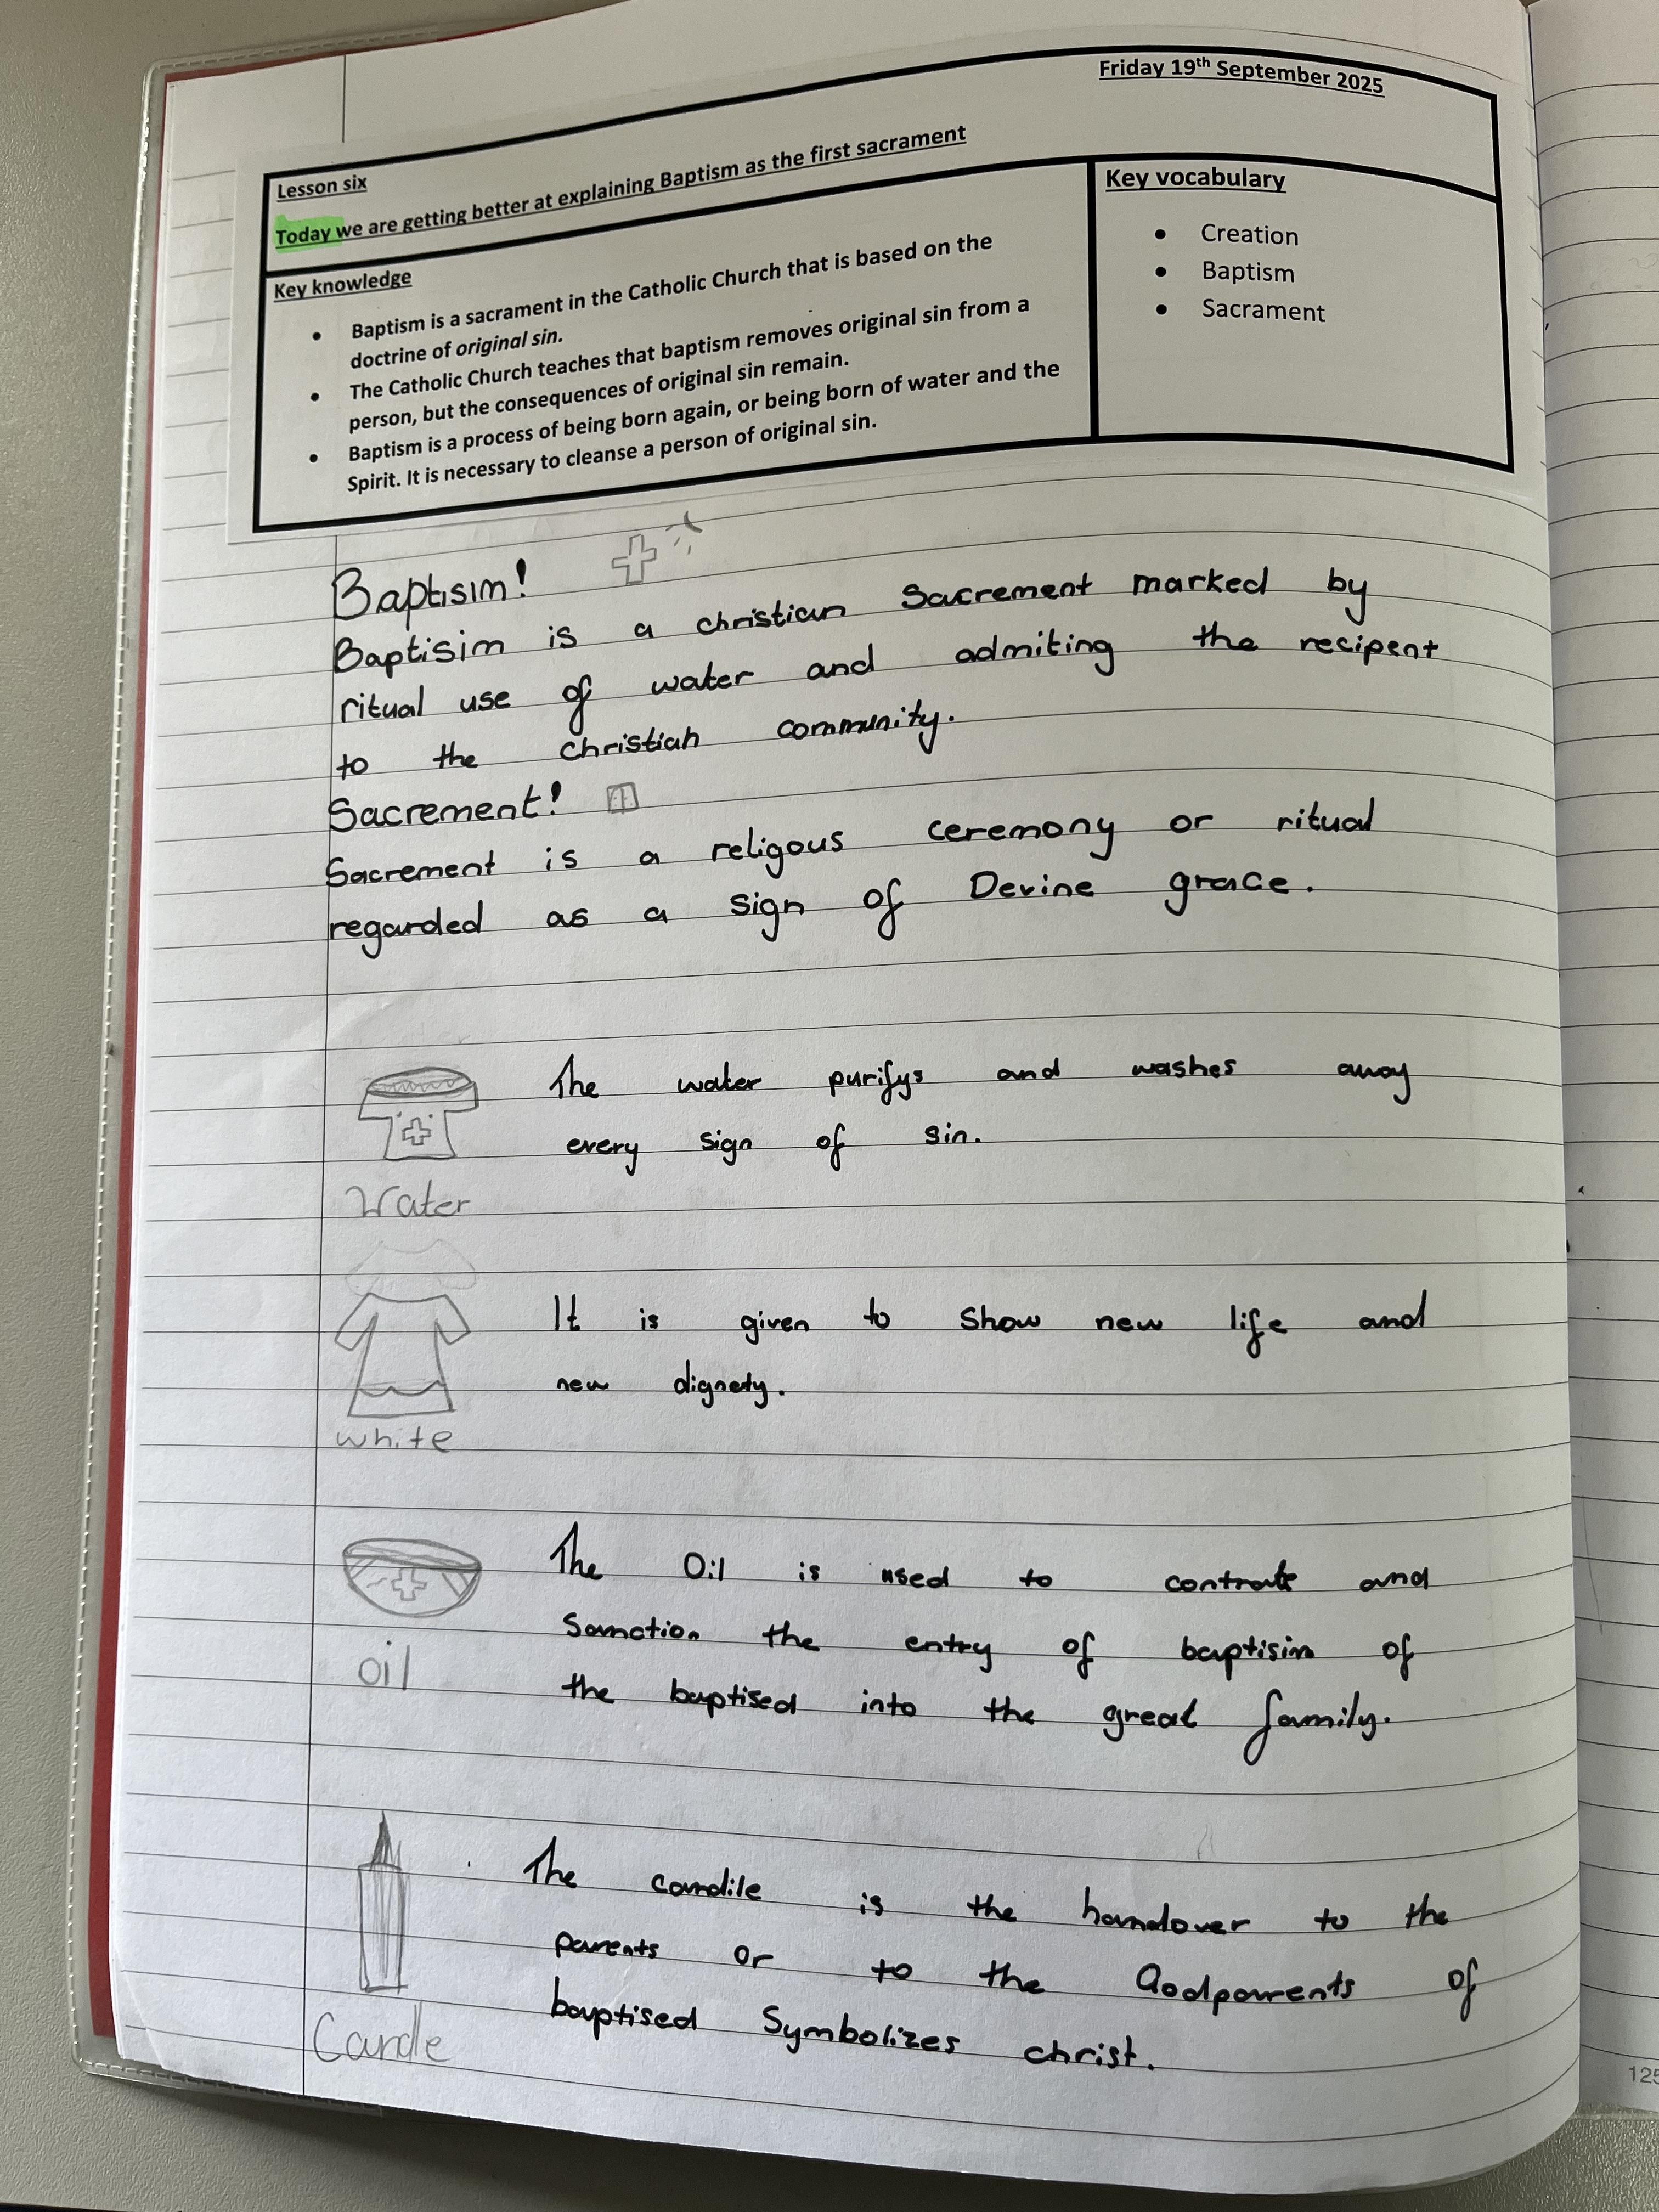 Friday 19th September 2025
Lesson six
Today we are getting better at explaining Baptism as the first sacrament
Key knowledge
• Baptism is a sacrament in the Catholic Church that is based on the
doctrine of original sin.
• The Catholic Church teaches that baptism removes original sin from a
person, but the consequences of original sin remain.
• Baptism is a process of being born again, or being born of water and the
Spirit. It is necessary to cleanse a person of original sin.
Key vocabulary
• Creation
• Baptism
• Sacrament
Baptisim!
Baptisim is a christian Sacrement marked by
ritual use of water and admiting the recipent
to the christian community.
Sacrement!
Sacrement is a religous ceremony or ritual
regarded as a sign of Devine grace.
The water purifys and washes away
every sign of sin.
Water
It is given to show new life and
new dignety.
white
The Oil is used to contrate and
Sanction the entry of baptisim of
the baptised into the great family.
oil
The candile is the handover to the
parents or to the Godparents of
baptised Symbolizes christ.
Candle
125